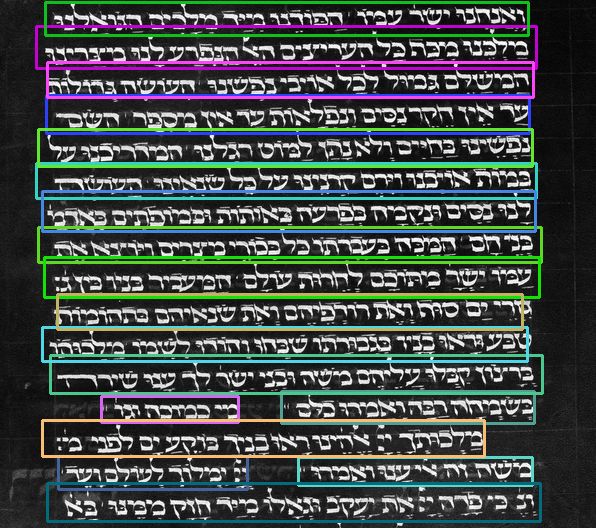 ואנחנו ישר׳ עמו׳ הפודנו מיד מלכים הגואלנו
מלכנו מכף כל העריצים הא׳ הנפרע לנו מצרינו
המשלם גמול לכל אויבי נפשנו העושה גדולות
עד אין חקר נסים ונפלאות עד אין מספר השם
נפשינו בחיים ולא נתן למוט רגלנו המדריכנו על
במות אויבנו וירם קרנינו על כל שנאינו העושה
לנו נסים ונקמה בפרעה באותות ובמופתים באדמ׳
בני חם המכה בעברתו כל בכורי מצרים ויוצא את
עמו ישר׳ מתוכם לחרות עולם המעביר בניו בין
גזרי ים סוף ואת רודפיהם ואת שנאיהם בתהומות
טבע וראו בניו גבורתו שבחו והודו לשמו ומלכותו
ברצון קבלו עליהם משה ובני ישר׳ לך ענו שירה
בשמחה רבה ואמרו כלם
מי כמוכה וגו׳
מלכותך יי׳ אלהינו ראו בניך בוקע ים לפני מ׳
משה זה אלי ענו ואמרו
יי׳ ימלוך לעולם ועד
ונ׳ כי פדה יי׳ את יעקב וגאלו מיד חזק ממנו בא